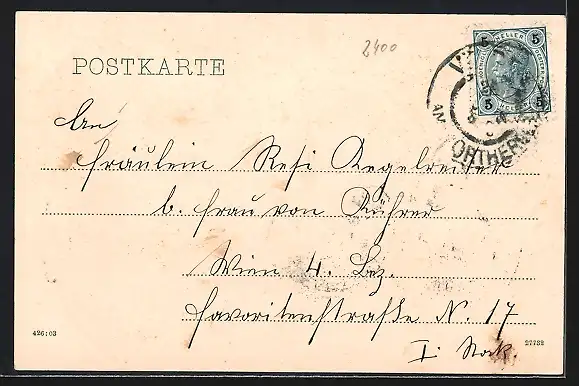 2400
POSTKARTE
5 HELLER 5
5 HELLER 5
ORTHER
An
Fräulein Resi Regelreiter
b. Frau von Rührer
Wien 4. Bez.
Favoritenstraße N. 17
I. Stock.
426:03
27732